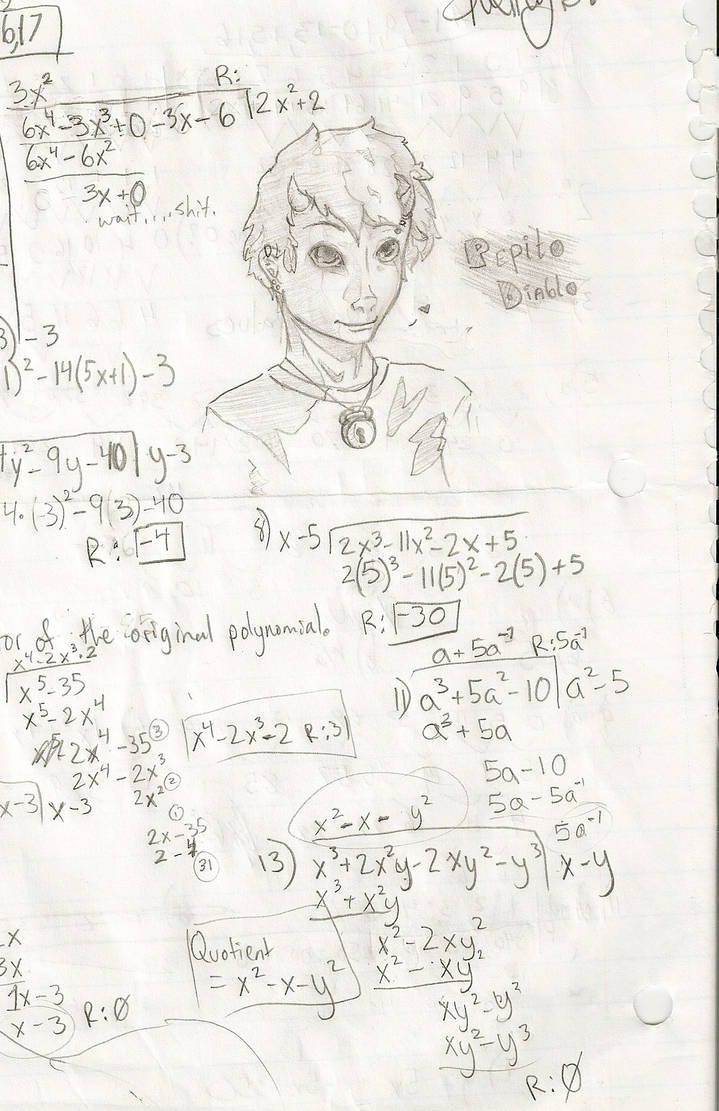 6,17
3x² R:
6x⁴-3x³+0-3x-6 | 2x²+2
6x⁴-6x²
3x+0
wait....shit.
Pepito
Diablo
-3
1)²-14(5x+1)-3
4y²-9y-40 | y-3
4·(-3)²-9(3)-40
R: -4
8) x-5 | 2x³-11x²-2x+5
2(5)³-11(5)²-2(5)+5
R: -30
or of the original polynomial.
x⁴-2x³-2
x⁵-35
x⁵-2x⁴
-2x⁴-35
2x⁴-2x³
2x²
2x-35
2-4
31
x⁴-2x³-2 R:31
a+5a⁻¹ R:5a⁻¹
11) a³+5a²-10 | a²-5
a³+5a
5a-10
5a-5a⁻¹
5a⁻¹
x-3 | x-3
x²-x-y²
13) x³+2x²y-2xy²-y³ | x-y
x³+x²y
x²-2xy²
x²-xy²
xy²-y³
xy²-y³
R:Ø
Quotient
=x²-x-y²
3x
1x-3
x-3 R:Ø